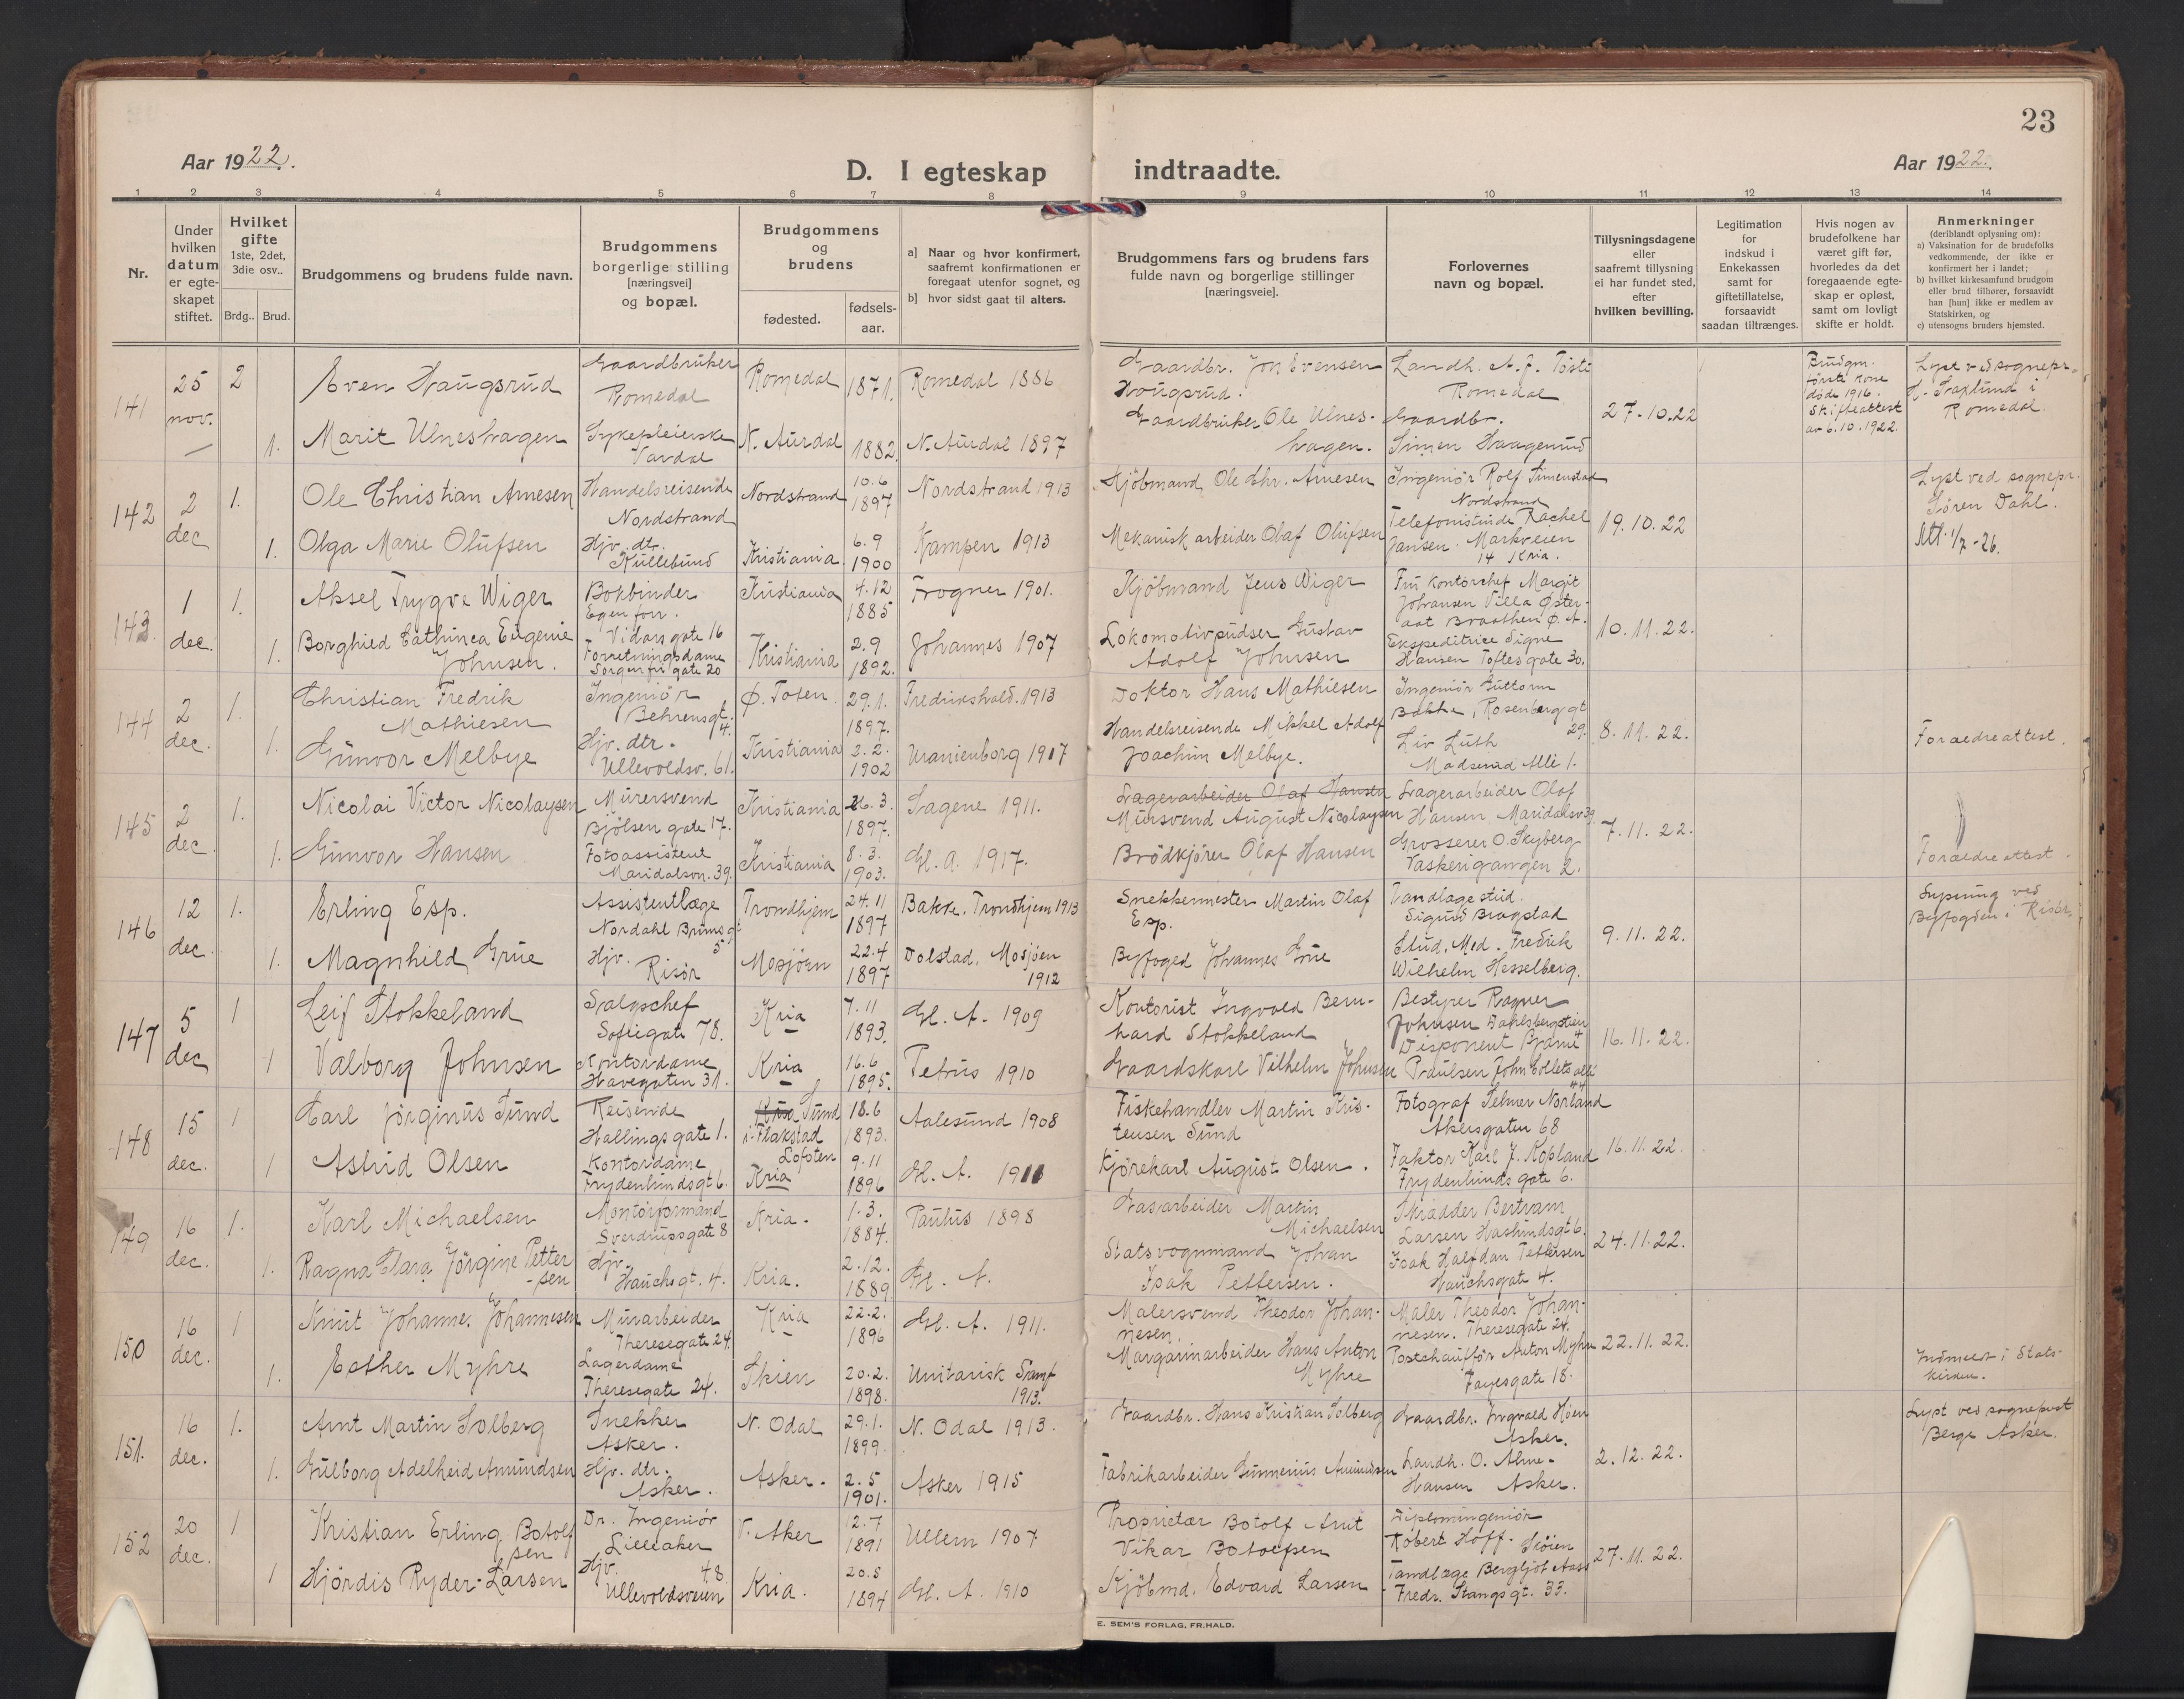 23
Aar 1922.
D. I egteskap indtraadte.
Aar 1922.
1 2 3 4 5 6 7 8 9 10 11 12 13 14
Nr.
Under hvilken datum er egte-skapet stiftet.
Hvilket gifte 1ste, 2det, 3die osv..
Brdg.. Brud.
Brudgommens og brudens fulde navn.
Brudgommens borgerlige stilling [næringsvei] og bopæl.
Brudgommens og brudens
fødested.
fødsels-aar.
a] Naar og hvor konfirmert, saafremt konfirmationen er foregaat utenfor sognet, og
b] hvor sidst gaat til alters.
Brudgommens fars og brudens fars fulde navn og borgerlige stillinger [næringsveie].
Forlovernes navn og bopæl.
Tillysningsdagene eller saafremt tillysning ei har fundet sted, efter hvilken bevilling.
Legitimation for indskud i Enkekassen samt for giftetillatelse, forsaavidt saadan tiltrænges.
Hvis nogen av brudefolkene har været gift før, hvorledes da det foregaaende egte-skap er opløst, samt om lovligt skifte er holdt.
Anmerkninger (deriblandt oplysning om):
a) Vaksination for de brudefolks vedkommende, der ikke er konfirmert her i landet;
b) hvilket kirkesamfund brudgom eller brud tilhører, forsaavidt han [hun] ikke er medlem av Statskirken, og
c) utensogns bruders hjemsted.
141 25 nov. 2 Even Haugsrud Gaardbruker Romedal Romedal 1871. Romedal 1886 Gaardbr. Jon Evensen Haugsrud. Landh. A. J. Toste Romedal 27.10.22 Brudgm. første kone døde 1916. Skifteattest av 6.10.1922. Lyst ved sognepr. Romedal
1. Marit Ulneshagen Sykepleierske Vardal N. Aurdal 1882. N. Aurdal 1897 Gaardbruker Ole Ulneshagen. Gaardbr. Simen Haagenrud
142 2 dec 1. Ole Christian Arnesen Handelsreisende Nordstrand Nordstrand 10.6 1897 Nordstrand 1913 Kjöbmand Ole Chr. Arnesen Ingeniør Rolf Simenstad Nordstrand 19.10.22 Lyst ved sognepr. Søren Dahl. Att. 1/7-26.
1. Olga Marie Olufsen Hjv. dtr. Kullebund Kristiania 6.9 1900 Kampen 1913 Mekanisk arbeider Olaf Olufsen Telefonistinde Rachel Jansen. Markveien 14 Kria.
143 1 dec. 1. Aksel Trygve Wiger Bokbinder Egen forr. Vidarsgate 16 Kristiania 4.12 1885 Frogner 1901. Kjöbmand Jens Wiger Fru Kontorchef Margit Johansen Villa Øster- aat Braathen Ø. A. 10.11.22.
1. Borghild Cathinca Eugenie Johnsen. Forretningsdame Sorgenfrigate 20 Kristiania 2.9 1892. Johannes 1907 Lokomotivpudser Gustav Adolf Johnsen Ekspeditrice Signe Hansen Toftesgate 30.
144 2 dec. 1. Christian Fredrik Mathiesen Ingeniør Behrensgt. 4. Ø. Toten 29.1. 1897. Fredrikshald. 1913 Doktor Hans Mathiesen Ingeniør Guttorm Bakke, Rosenberggt 29. 8.11.22. Foraedreattest.
1. Gunvor Melbye Hjv. dtr. Ullevoldsv. 61. Kristiania 2.2. 1902 Uranienborg 1917 Handelsreisende Mikkel Adolf Joachim Melbye. Liv Luth Madserud Allé 1.
145 2 dec. 1. Nicolai Victor Nicolaysen Murersvend Bjölsen gate 17. Kristiania 26.3. 1897. Sagene 1911. Lagerarbeider Olaf Hansen Mursvend August Nicolaysen Lagerarbeider Olaf Hansen, Maridalsv 39. 7.11.22. Foraedreattest.
1. Gunvor Hansen Fotoassistent Maridalsvn. 39. Kristiania 8.3. 1903. Gl. A. 1917. Brödkjörer Olaf Hansen Grosserer O. Skyberg Vaskerigangen 2.
146 12 dec. 1. Erling Esp. Assistentlæge Nordahl Brunsgt 5 Trondhjem 24.11 1897 Bakke, Trondhjem 1913 Snekkermester Martin Olaf Esp. Tandlægestud. Sigurd Bragstad 9.11.22. Lysning ved Byfogden i Risør.
1. Magnhild Grue Hjv. Risör Mosjöen 22.4 1897 Dolstad, Mosjöen 1912 Byfoged Johannes Grue Stud. Med. Fredrik Wilhelm Hesselberg.
147 5 dec 1 Leif Stokkeland Salgschef Sofiegate 78. Kria 7.11 1893. Gl. A. 1909 Kontorist Ingvald Bernhard Stokkeland Bestyrer Ragner Johnsen Dahlsbergstien 4 16.11.22.
1 Valborg Johnsen Kontordame Havegaten 31. Kria 16.6 1895. Petrus 1910 Gaardskarl Vilhelm Johnsen Disponent Bjarne Paulsen John Collets allé 44
148 15 dec. 1 Carl Jörginus Sund Reisende Hallingsgate 1. Kria Sund i Flakstad Lofoten 18.6 1893. Aalesund 1908 Fiskehandler Martin Kristensen Sund Fotograf Selmer Norland Akersgaten 68 16.11.22.
1 Astrid Olsen Kontordame Frydenlundsgt 6. Kria 9.11 1896 Gl. A. 1911 Kjörekarl August Olsen. Faktor Karl J. Kopland Frydenlunds gate 6.
149 16 dec. 1. Karl Michaelsen Montörformand Sverdrupsgate 8 Kria. 1.3. 1884. Paulus 1898 Gasarbeider Martin Michaelsen Skrædder Bertram Larsen Haslundsgt 6. 24.11.22.
1. Ragna Clara Jörgine Pettersen Hjv. Hauchsgt. 4. Kria. 2.12. 1889 Gl. A. Statsvognmand Johan Isak Pettersen. Isak Halfdan Pettersen Hauchsgate 4.
150 16 dec. 1 Knut Johannes Johannesen Murarbeider Theresegate 24. Kria 22.2. 1896 Gl. A. 1911. Malersvend Theodor Johannesen. Maler Theodor Johannesen. Theresegate 24. 22.11.22. Indmeldt i Statskirken.
1. Esther Myhre Lagerdame Theresegate 24. Skien 20.2. 1898. Unitarisk Samf 1913. Margarinarbeider Hans Anton Myhre Postchauffør Anton Myhre Fayesgate 18.
151. 16 dec. 1. Arnt Martin Solberg Snekker Asker. N. Odal 29.1. 1899. N. Odal 1913. Gaardbr. Hans Kristian Solberg Gaardbr. Ingvald Høen Asker. 2.12.22. Lyst ved sogneprest Berge Asker.
1. Gulborg Adelheid Amundsen Hjv. dtr. Asker. Asker. 2.5 1901. Asker 1915 Fabrikarbeider Gunnerius Amundsen Landh. O. Hansen Asker.
152 20 dec. 1 Kristian Erling Botolfsen Dr. Ingeniør Lilleaker V. Aker 12.7 1891 Ullern 1907 Proprietær Botolf Arnt Vikar Botolfsen Diplomingeniør Robert Hoff- 27.11.22.
1 Hjördis Ryder-Larsen Hjv. Ullevoldsveien 48 Kria. 20.8 1894 Gl. A. 1910 Kjöbmd. Edvard Larsen Tandlæge Bergljot Aass Fredr. Stangsgt. 33.
E. SEM'S FORLAG, FR.HALD.